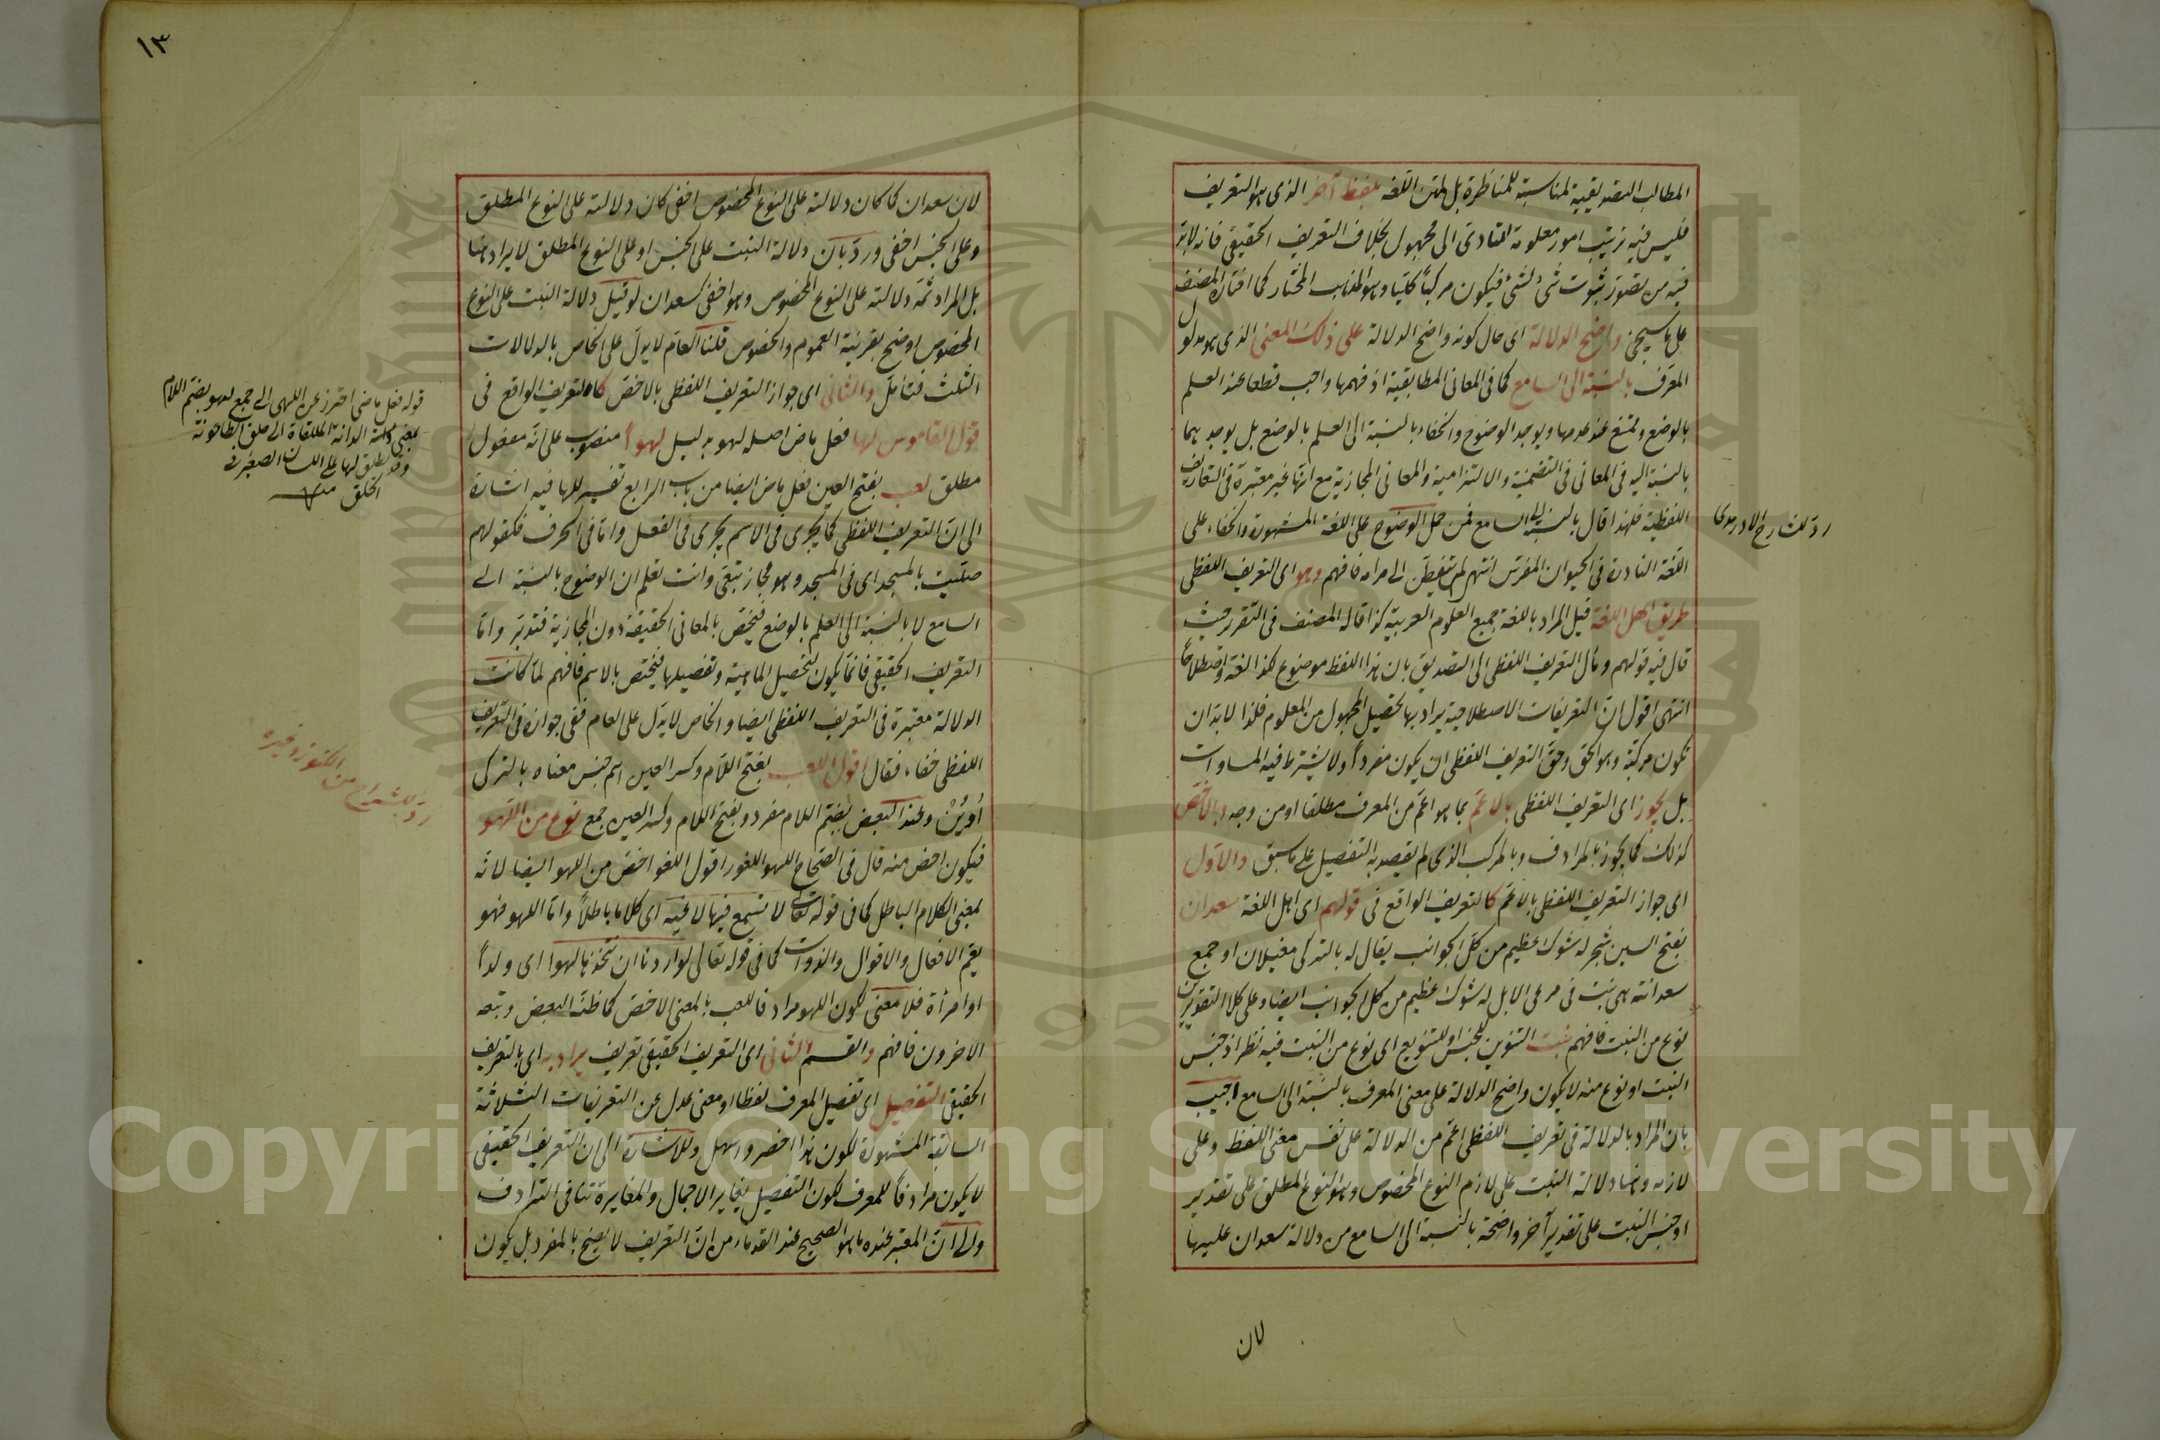 المطالب التصديقية لمناسبة للمناظرة بل لمتن اللغة بلفظ آخر الذى هو التعريف
فليس فيه ترتيب امور معلومة للتادى الى مجهول بخلاف التعريف الحقيقى فانه لابد
فيه من تصور ثبوت شئ لشئ فيكون مركبا كليا وهو المذهب المختار كما اختاره المصنف
على ما سيجئ واضح الدلالة اى حال كونه واضح الدلالة على ذلك المعنى الذى هو مدلول
المعرف بالنسبة الى السامع كما فى المعانى المطابقية اذ فهمها واجب قطعا عند العلم
بالوضع وممتنع عند عدمها ويوجد الوضوح والخفاء بالنسبة الى العلم بالوضع بل يوجد بهما
بالنسبة اليه فى المعانى فى التضمنية والالتزامية والمعانى المجازية مع انها غير معتبرة فى التعاريف
اللفظية فلهذا قال بالنسبة الى السامع فمن حمل الوضوح على اللغة المشهودة والخفاء على
اللغة النادرة فى الحيوان المفترس انتهى لم يتفطن الى مرامه فافهم وهو اى التعريف اللفظى
طريق اهل اللغة قيل المراد باللغة جميع العلوم العربية كذا قاله المصنف فى التقرير حيث
قال فيه قولهم ومأل التعريف اللفظى الى التصديق بان هذا اللفظ موضوع لكذا لغة واصطلاحا
انتهى اقول ان التعريفات الاصطلاحية يراد بها تحصيل المجهول من المعلوم فلذا لابد ان
تكون مركبة وهو الحق وحق التعريف اللفظى ان يكون مفردا ولا يشترط فيه المساوات
بل يجوز اى التعريف اللفظى بالاعم بما هو اعم من المعرف مطلقا او من وجه وبالاخص
كذلك كما يجوز بالمرادف وبالمركب الذى لم يقصد به التفصيل على ما سبق والاول
اى جواز التعريف اللفظى بالاعم كالتعريف الواقع فى قولهم اى اهل اللغة سعدان
بفتح السين شجر له شوك عظيم من كل الجوانب يقال له بالتركى مغيلان او جمع
سعدانة هى نبت فى مرعى الابل له شوك عظيم من كل الجوانب ايضا وعلى كلا التقديرين
نوع من النبت فافهم نبت التنوين للجنس او للتنويع اى نوع من النبت فيه نظر اذ جنس
النبت او نوع منه لا يكون واضح الدلالة على معنى المعرف بالنسبة الى السامع اجيب
بان المراد بالدلالة فى تعريف اللفظى اعم من الدلالة على نفس معنى اللفظ وعلى
لازمه وههنا دلالة النبت على لازم النوع المخصوص وهو النوع المطلق على تقدير
او جنس النبت على تقدير آخر واضحة بالنسبة الى السامع من دلالة سعدان عليها
لان
رد للشارح الادرموى
١٣
لان سعدان كما كان دلالته على النوع المخصوص اخفى كان دلالته على النوع المطلق
وعلى الجنس اخفى ورد بان دلالة النبت على الجنس او على النوع المطلق لا يراد ههنا
بل المراد ثمه دلالته على النوع المخصوص وهو اخفى كسعدان لو قيل دلالة النبت على النوع
المخصوص اوضح بقرينة العموم والخصوص قلنا العام لا يدل على الخاص بالدلالات
الثلث فتأمل والثانى اى جواز التعريف اللفظى بالاخص كالتعريف الواقع فى
قول القاموس لها فعل ماض اصله لهو بدليل لهوا منصوب على انه مفعول
مطلق لعب بفتح العين فعل ماض ايضا من باب الرابع تفسير للها فيه اشارة
الى ان التعريف اللفظى كما يجرى فى الاسم يجرى فى الفعل واما فى الحرف فكقولهم
صليت بالمسجد اى فى المسجد وهو مجاز تبعى وانت تعلم ان الوضوح بالنسبة الى
السامع لا بالنسبة الى العلم بالوضع فيختص بالمعانى الحقيقة دون المجازية فتدبر واما
التعريف الحقيقى فانما يكون لتحصيل الماهية وتفصيلها فيختص بالاسم فافهم لما كانت
الدلالة معتبرة فى التعريف اللفظى ايضا والخاص لا يدل على العام ففى جوازه فى التعريف
اللفظى خفاء فقال اقول اللعب بفتح اللام وكسر العين اسم جنس معناه بالتركى
اويون وعند البعض بضم اللام مفرد وبفتح اللام وكسر العين جمع نوع من اللهو
فيكون اخص منه قال فى الصحاح اللهو اللغو اقول اللغو اخص من اللهو ايضا لانه
بمعنى الكلام الباطل كما فى قوله تعالى لا تسمع فيها لاغية اى كلاما باطلا واما اللهو فهو
يعم الافعال والاقوال والذوات كما فى قوله تعالى لو اردنا ان نتخذها لهوا اى ولدا
او امرأة فلا معنى لكون اللهو مرادفا للعب بالمعنى الاخص كما ظنه البعض وتبعه
الاخرون فافهم والقسم الثانى اى التعريف الحقيقى تعريف يراد به اى بالتعريف
الحقيقى التفصيل اى تفصيل المعرف لفظا او معنى عدل عن التعريفات الثلاثة
السابقة المشهودة لكون هذا اخصر واسهل وللاشارة الى ان التعريف الحقيقى
لا يكون مرادفا للمعرف لكون التفصيل يغاير الاجمال والمغايرة تنافى الترادف
والى ان المعتبر عنده ما هو الصحيح عند القدماء من ان التعريف لا يصح بالمفرد بل يكون
قوله فعل ماضى احترز عن اللهى الى جمع لهو بضم اللام
بمعنى الملقاة الى حلق الطاحونة
وقد يطلق لها على اللسان الصغير فى
الحلق منه
رد للشراح من الكنوز وغيره
Copyright © King Saud University